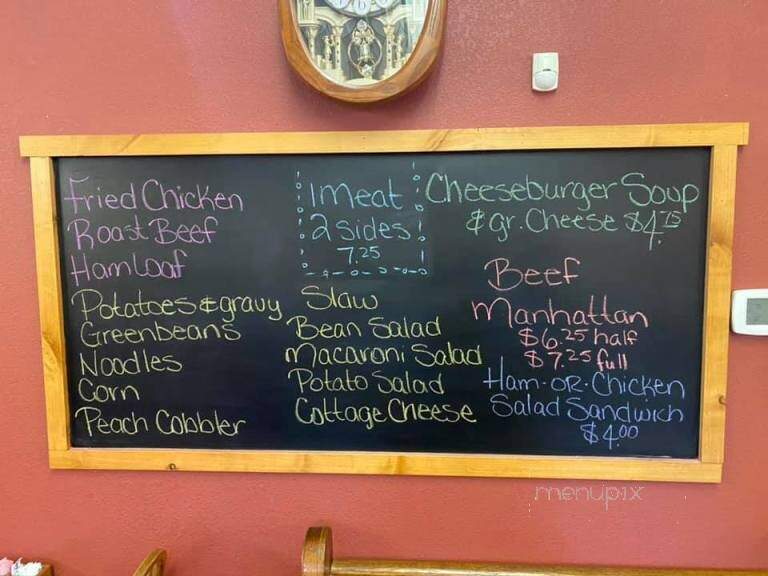 Fried Chicken
Roast Beef
Ham loaf
Potatoes & gravy
Greenbeans
Noodles
Corn
Peach Cobbler
1 meat
2 sides
7.25
Slaw
Bean Salad
Macaroni Salad
Potato Salad
Cottage Cheese
Cheeseburger Soup
& gr. Cheese $4.75
Beef
Manhattan
$6.25 half
$7.25 full
Ham-OR-Chicken
Salad Sandwich
$4.00
menupix